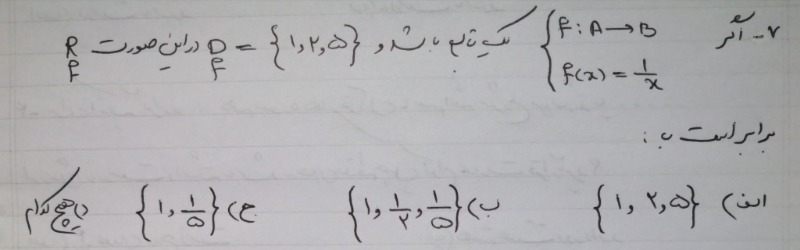 ۷- اگر { f: A → B یک تابع باشد و D_f = {۱, ۲, ۵} در این صورت R_f
f(x) = 1/x
برابر است با:
الف) {۱, ۲, ۵} ب) {۱, ۱/۲, ۱/۵} ج) {۱, ۱/۵} د) هیچ کدام